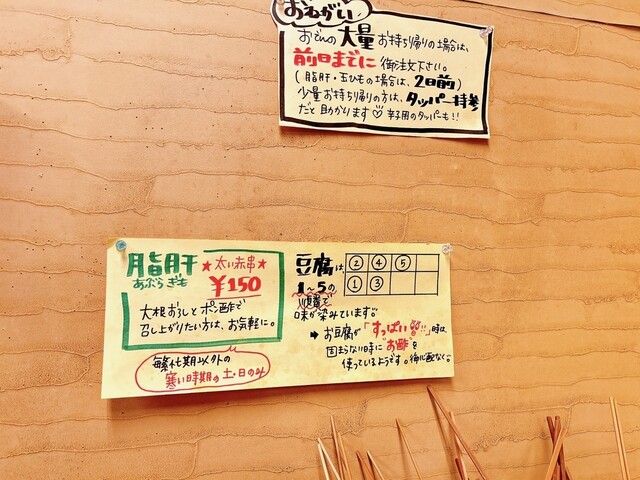 おねがい
おでんの大量お持ち帰りの場合は、
前日までに御注文下さい。
(脂肝・玉ひもの場合は、2日前)
少量お持ち帰りの方は、タッパー持参
だと助かります♡辛子用のタッパーも!!
脂肝
あぶらぎも
★太い赤串★
¥150
大根おろしとポン酢で
召し上がりたい方は、お気軽に。
繁忙期以外の
寒い時期の土・日のみ
豆腐は
1〜5の
順番で
味が染みています。
② ④ ⑤
① ③
➡ お豆腐が「すっぱい!!」時は、
固まらない時に"お酢"を
使っているようです。御心配なく。